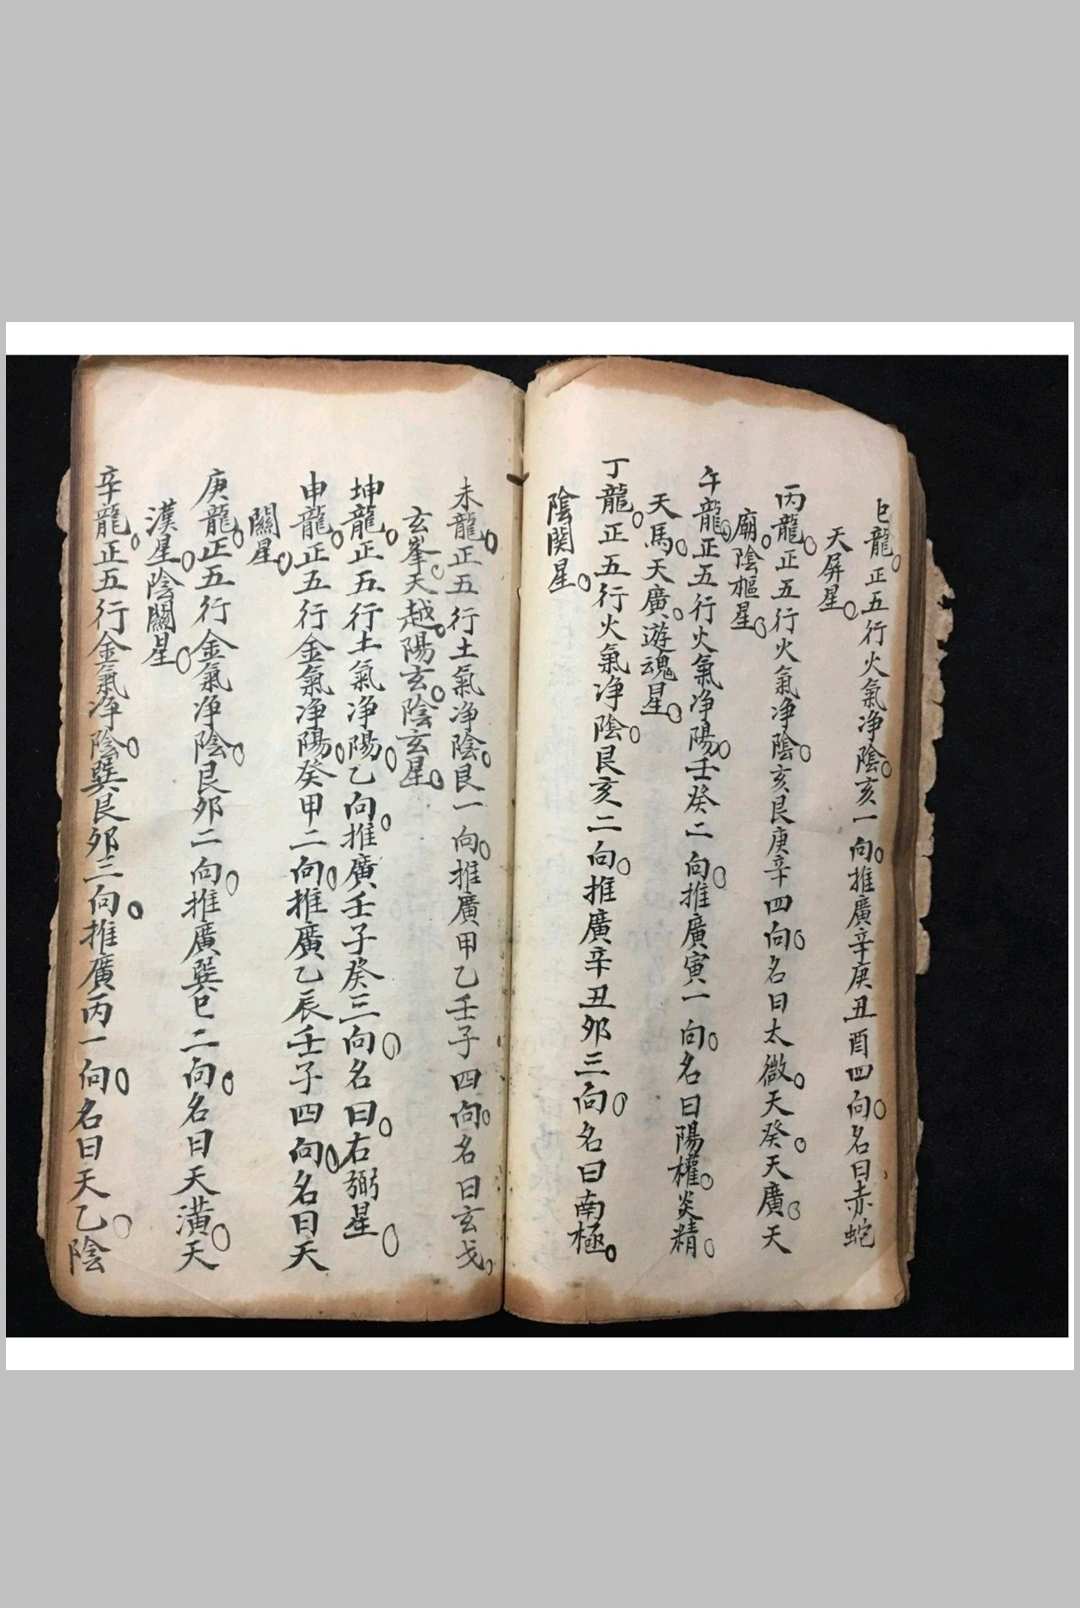 巳龍。正五行火氣净陰。亥一向。推廣辛庚丑酉四向。名曰赤蛇
天屏星。
丙龍。正五行火氣净陰。亥艮庚辛四向。名曰太微。天癸。天廣。天
廟。陰樞星。
午龍。正五行火氣净陽。壬癸二向。推廣寅一向。名曰陽權。炎精。
天馬。天廣。遊魂星。
丁龍。正五行火氣净陰。艮亥二向。推廣辛丑夘三向。名曰南極。
陰関星。
未龍。正五行土氣净陰。艮一向。推廣甲乙壬子四向。名曰玄戈。
玄峯。天越。陽玄。陰玄星。
坤龍。正五行土氣净陽。乙向。推廣壬子癸三向。名曰。右弼星。
申龍。正五行金氣净陽。癸甲二向。推廣乙辰壬子四向。名曰天
關星。
庚龍。正五行金氣净陰。艮夘二向。推廣巽巳二向。名曰天潢。天
漢星。陰關星。
辛龍。正五行金氣净陰。巽艮夘三向。推廣丙一向。名曰天乙。陰